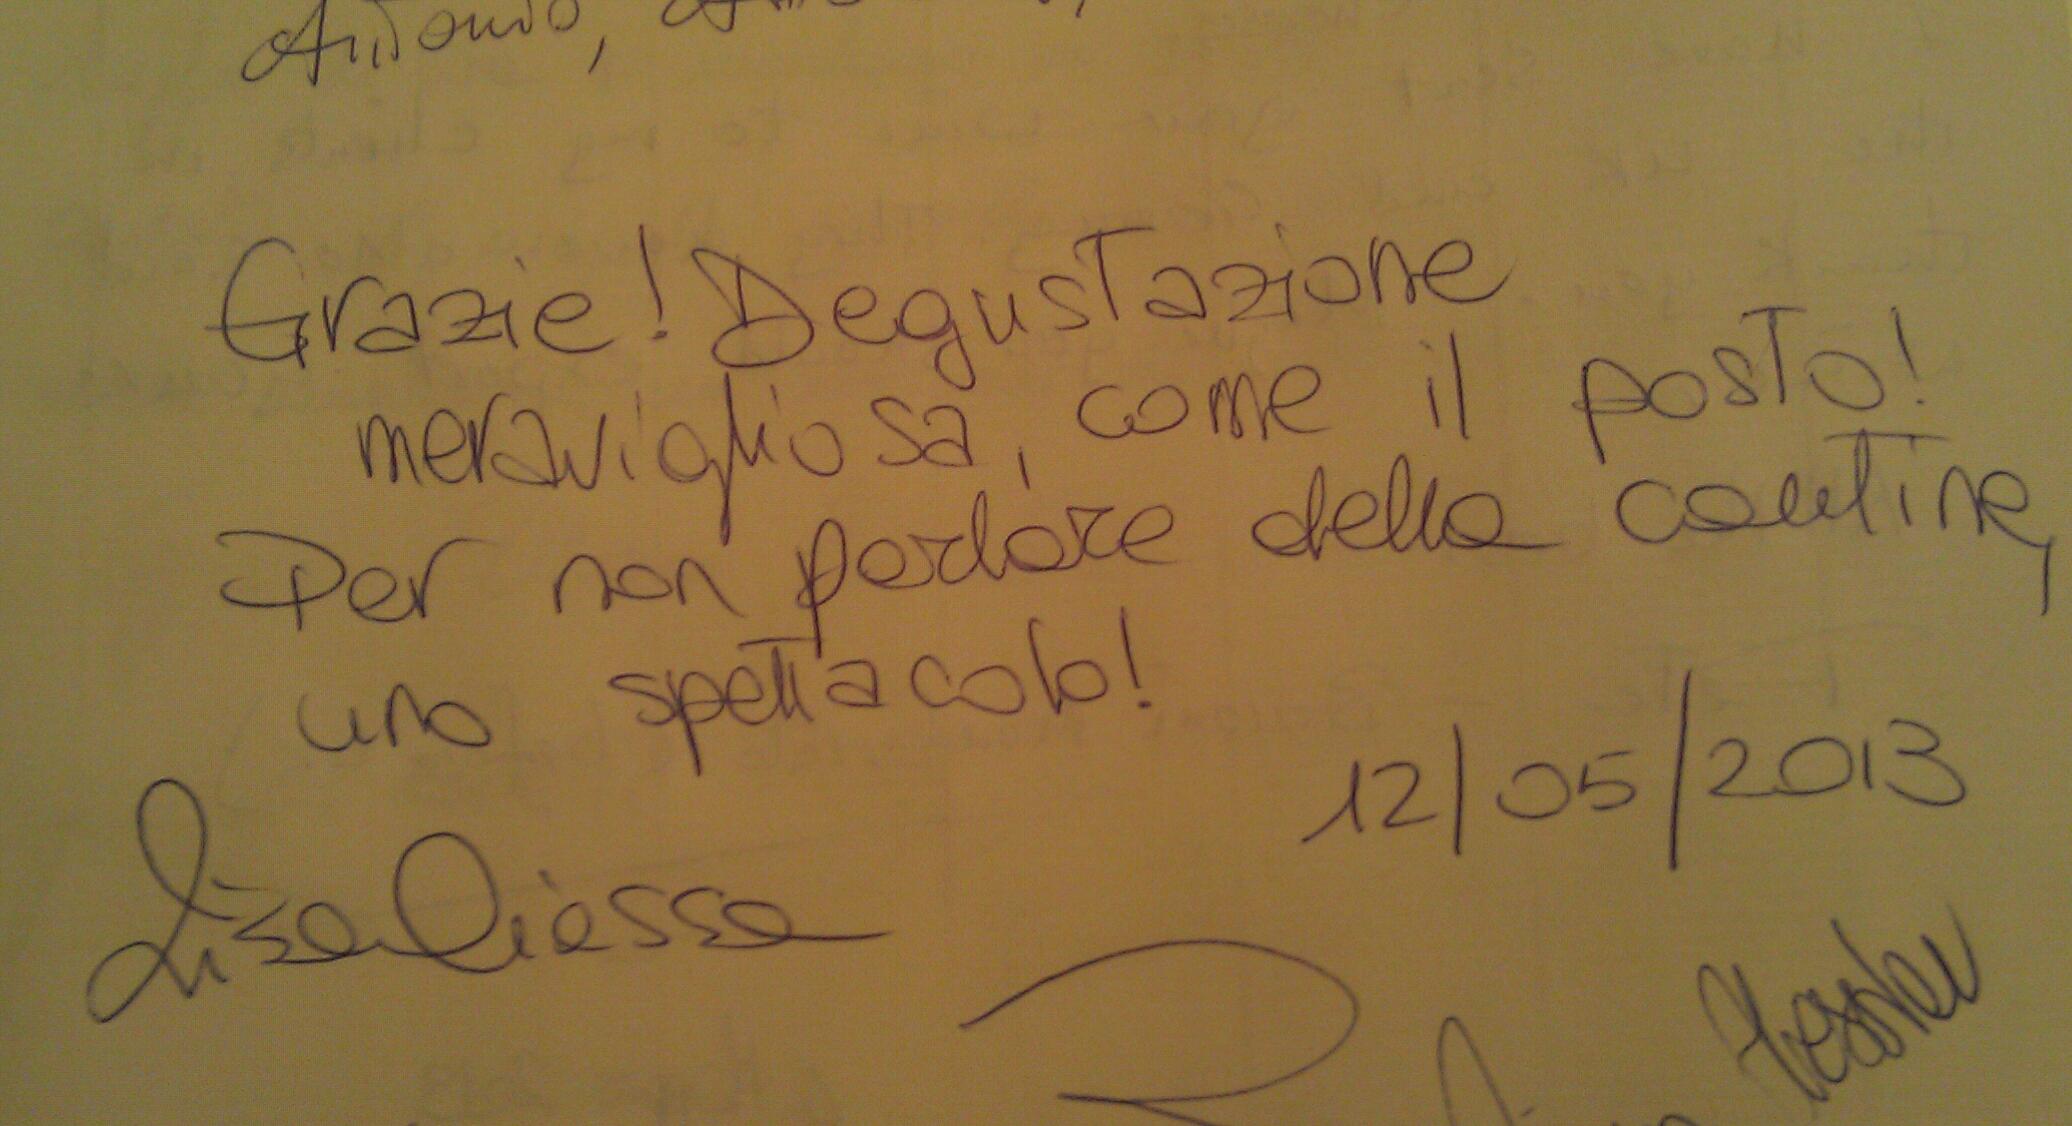 Antonio,
Grazie! Degustazione
meravigliosa, come il posto!
Per non parlare della cantine,
uno spettacolo!
12/05/2013
Lisa